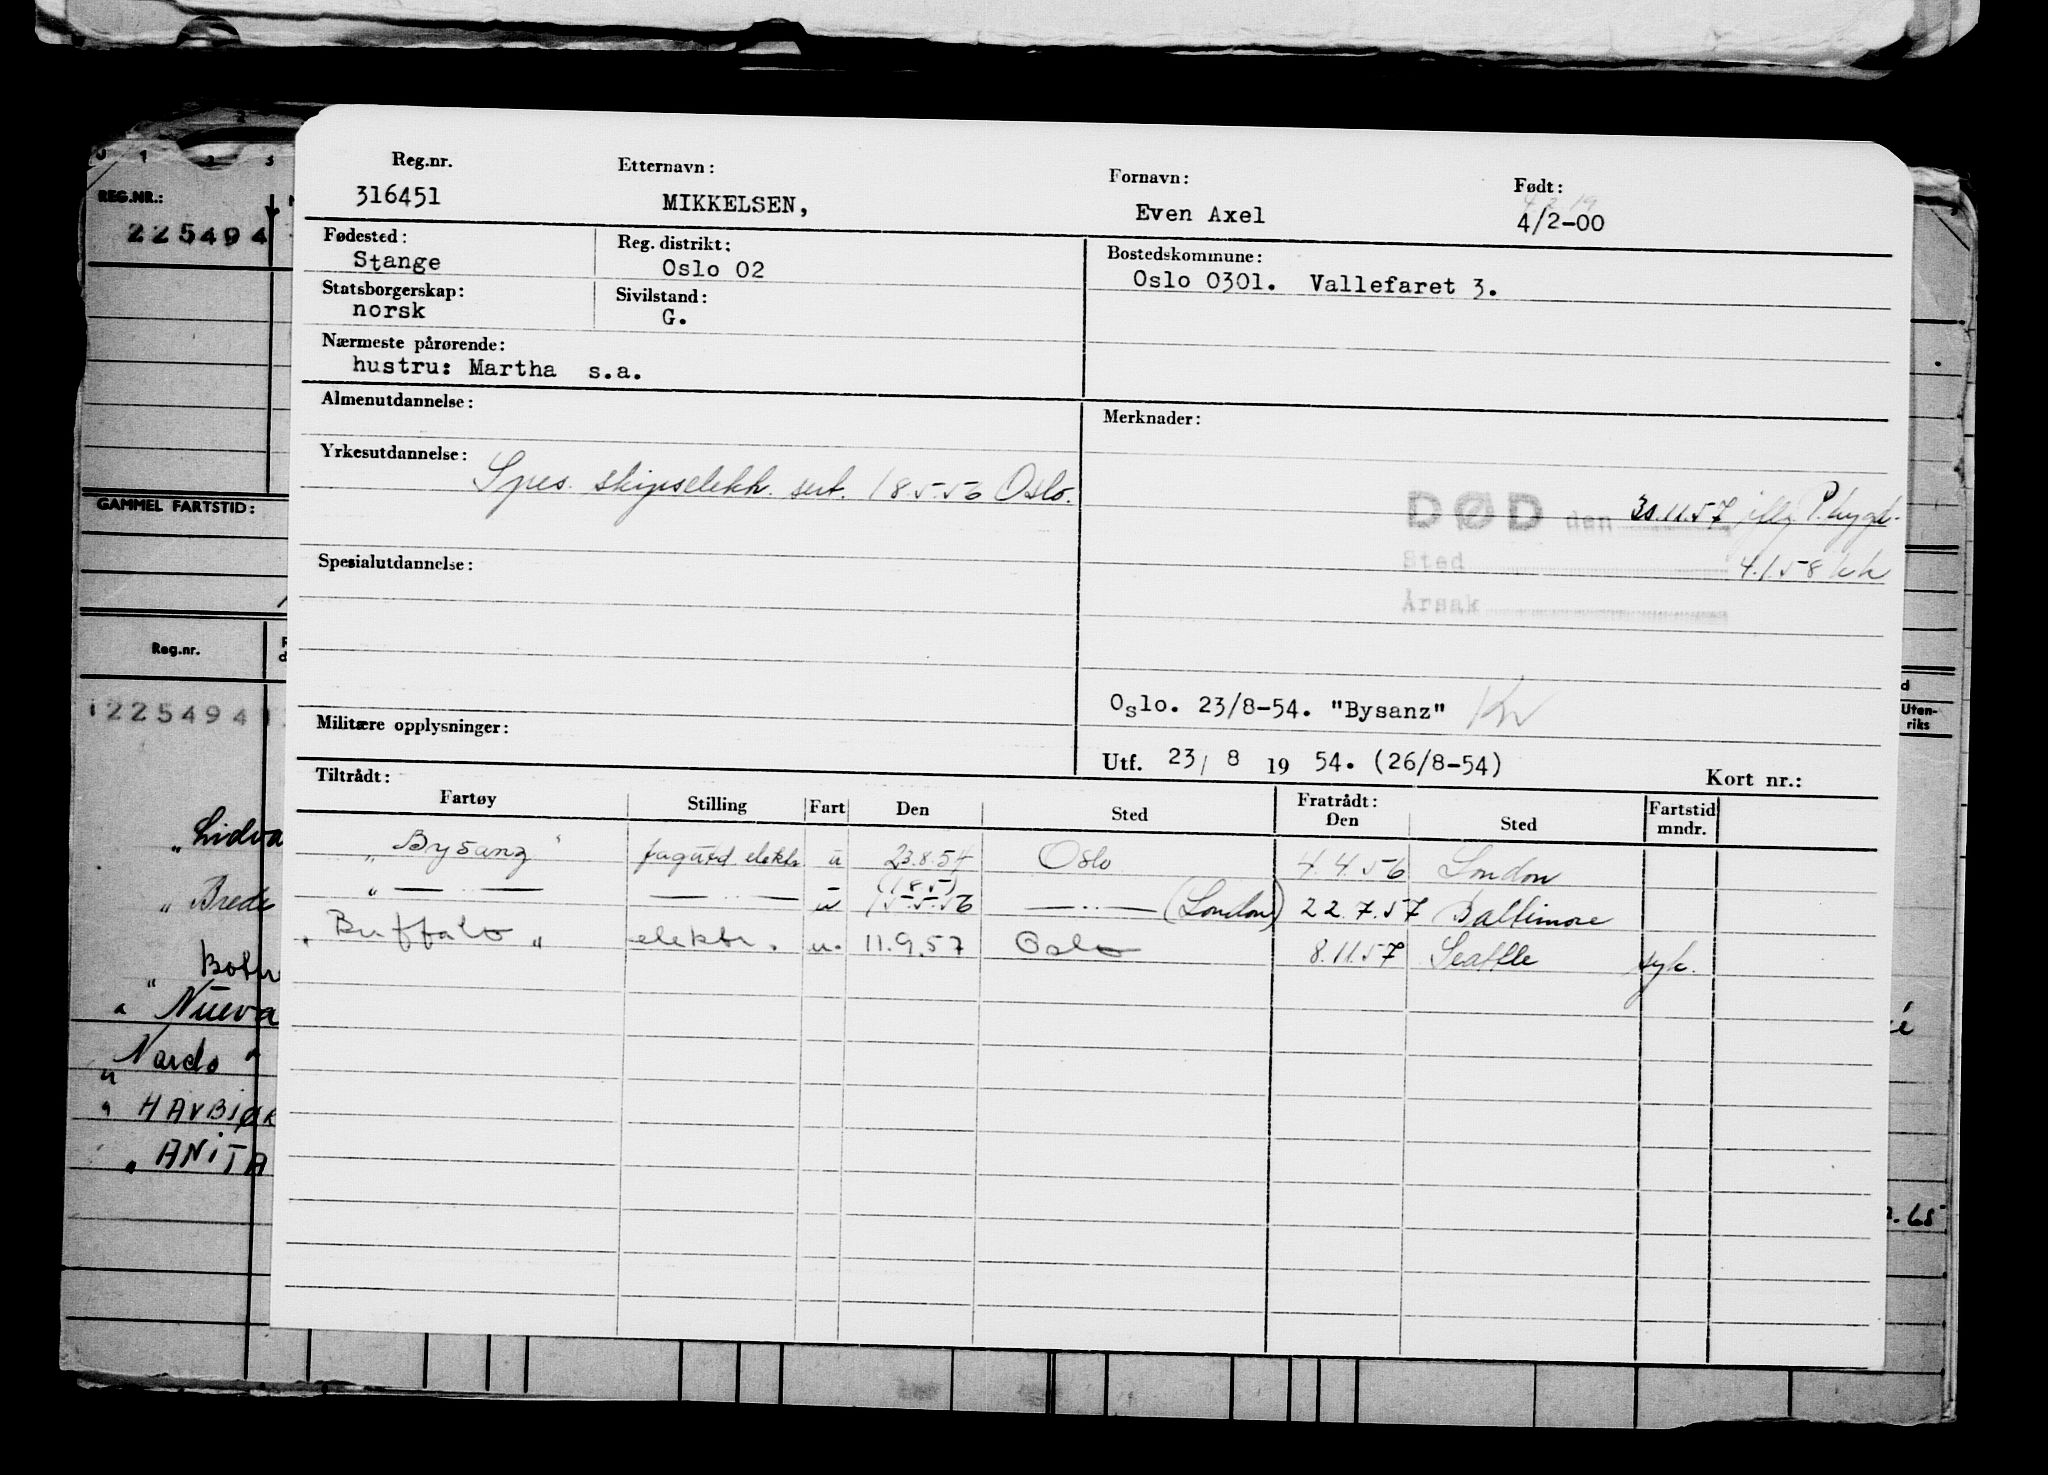 0 1 2 3
REG.NR.:
225494
GAMMEL FARTSTID:
Reg.nr.
1225494
„ Lidva
„ Brede
„ Botn
" Nueva
„ Nardo "
" HAVBJØR
„ ANITA
Reg.nr. Etternavn: Fornavn: Født:
4 2 19
316451 MIKKELSEN, Even Axel 4/2-00
Fødested: Reg. distrikt: Bostedskommune:
Stange Oslo 02 Oslo 0301. Vallefaret 3.
Statsborgerskap: Sivilstand:
norsk G.
Nærmeste pårørende:
hustru: Martha s.a.
Almenutdannelse: Merknader:
Yrkesutdannelse: Spes. skipselektr. sert. 18.5.56 Oslo.
DØD den 30.11.57 iflg. P.
Sted 4.1.58 kk
Årsak
Spesialutdannelse:
Oslo. 23/8-54. "Bysanz" Kn
Militære opplysninger:
Utf. 23/ 8 19 54. (26/8-54) Kort nr.:
Tiltrådt: Fratrådt:
Fartøy Stilling Fart Den Sted Den Sted Fartstid mndr.
„ Bysanz " fagutd elektr. u 23.8.54 Oslo 4.4.56 London
(18.5)
„ — .. — — .. — u 15.5.56 — .. — (London) 22.7.57 Baltimore
„ Buffalo „ elektr. u. 11.9.57 Oslo 8.11.57 Seattle syk.
d
Uten-
riks
é
. 65